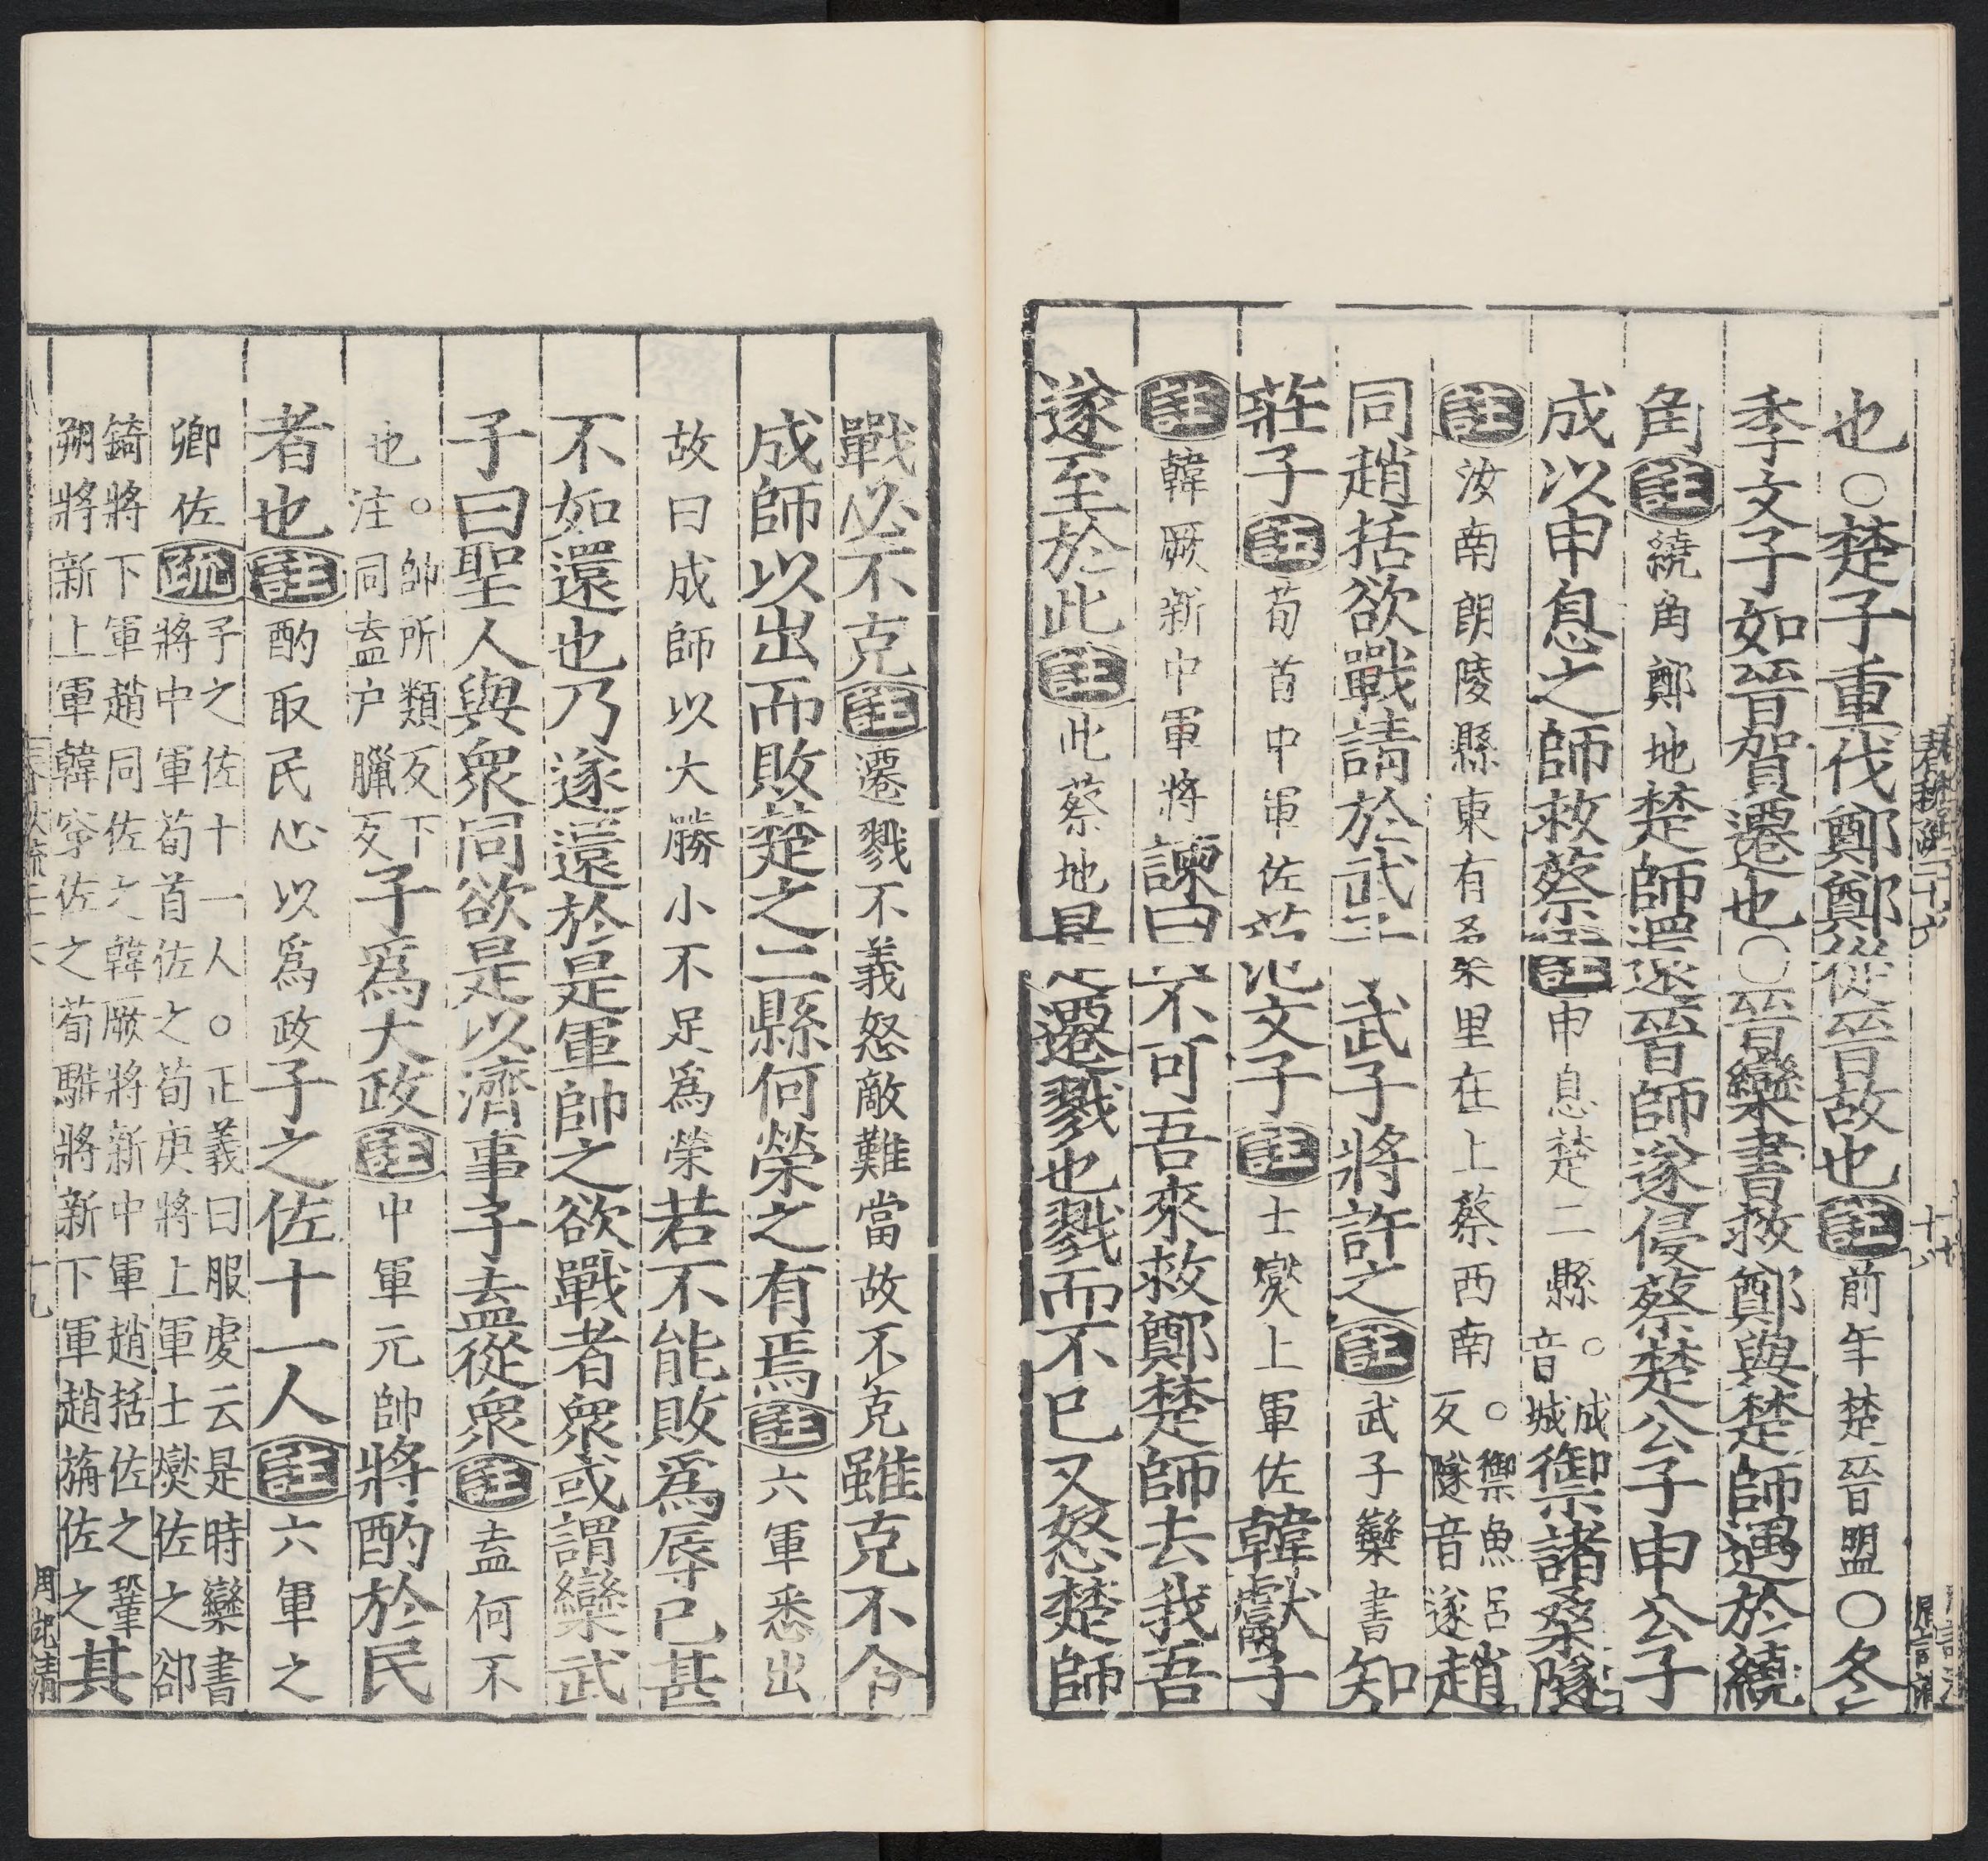 也○楚子重伐鄭鄭從晉故也註前年楚晉盟○冬
季文子如晉賀遷也○晉欒書救鄭與楚師遇於繞
角註繞角鄭地楚師還晉師遂侵蔡楚公子申公子
成以申息之師救蔡註申息楚二縣○成音城御諸桑隧
註汝南朗陵縣東有桑里在上蔡西南○禦魚呂反隧音遂趙
同趙括欲戰請於武子武子將許之註武子欒書知
莊子註荀首中軍佐范文子註士燮上軍佐韓獻子
註韓厥新中軍將諫曰不可吾來救鄭楚師去我吾
遂至於此註此蔡地是遷戮也戮而不已又怒楚師
戰必不克註遷戮不義怒敵難當故不克雖克不令
成師以出而敗楚之二縣何榮之有焉註六軍悉出
故曰成師以大勝小不足爲榮若不能敗爲辱已甚
不如還也乃遂還於是軍帥之欲戰者衆或謂欒武
子曰聖人與衆同欲是以濟事子盍從衆註盍何不
也○帥所類反下注同盍户臘反子爲大政註中軍元帥將酌於民
者也註酌取民心以爲政子之佐十一人註六軍之
卿佐疏子之佐十一人○正義曰服虔云是時欒書將中軍荀首佐之荀庚將上軍士燮佐之郤
錡將下軍趙同佐之韓厥將新中軍趙括佐之鞏朔將新上軍韓穿佐之荀騅將新下軍趙旃佐之其